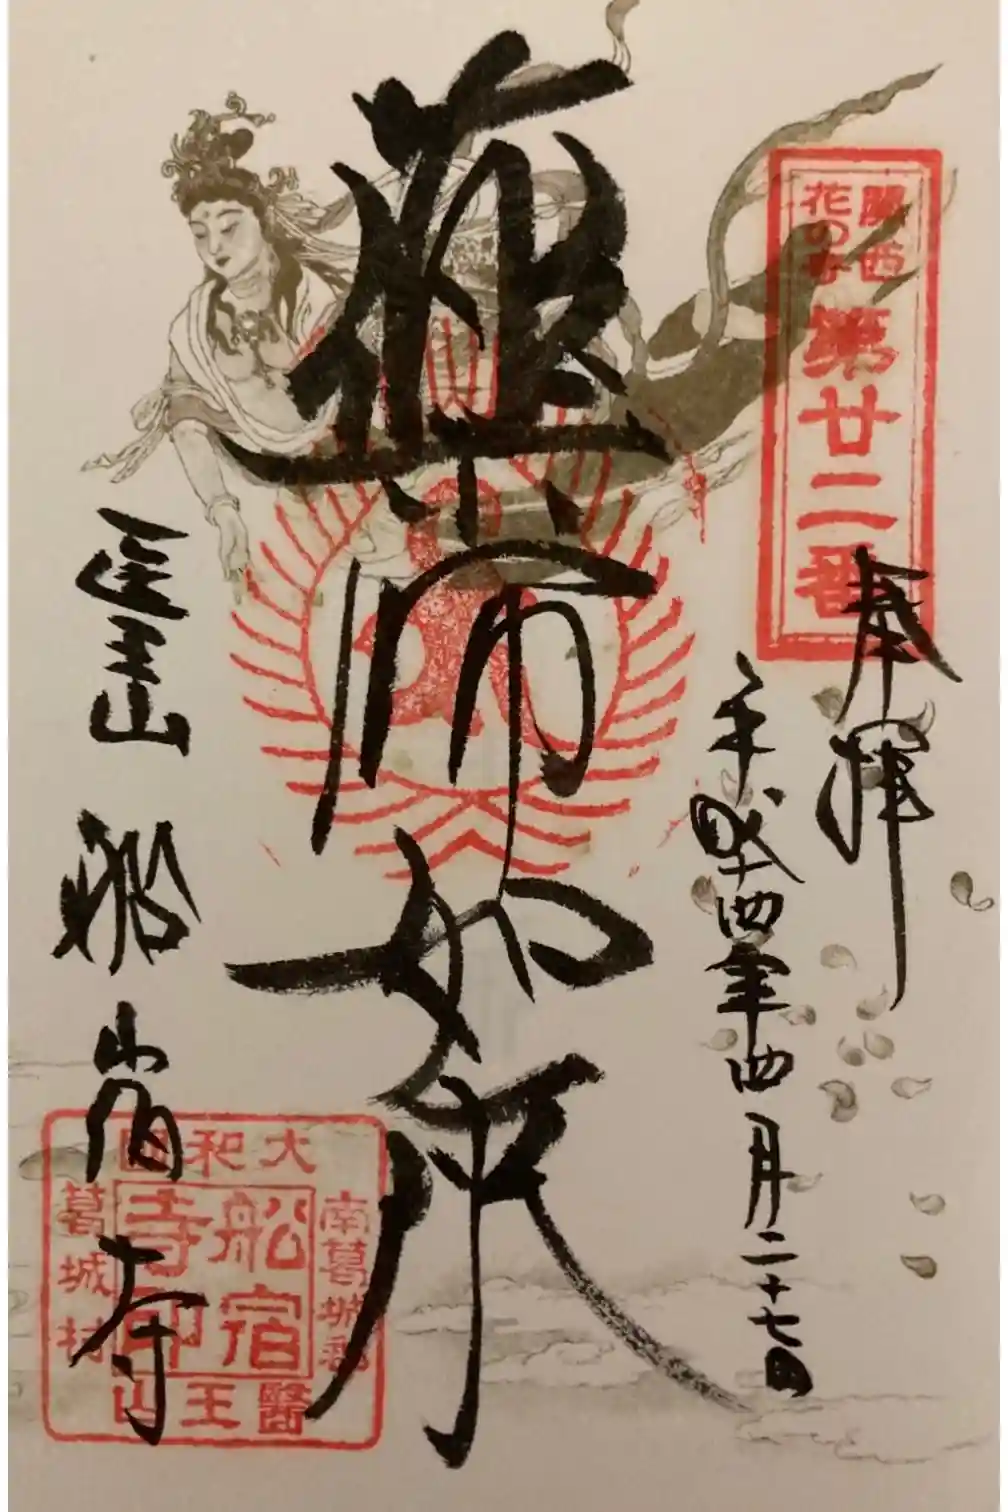 關西
花の寺
第廿二番
奉拝
平成廿四年四月二十七日
薬師如来
医王山
船宿寺
大和国
南葛城郡
葛城村
船宿
寺印
醫王山